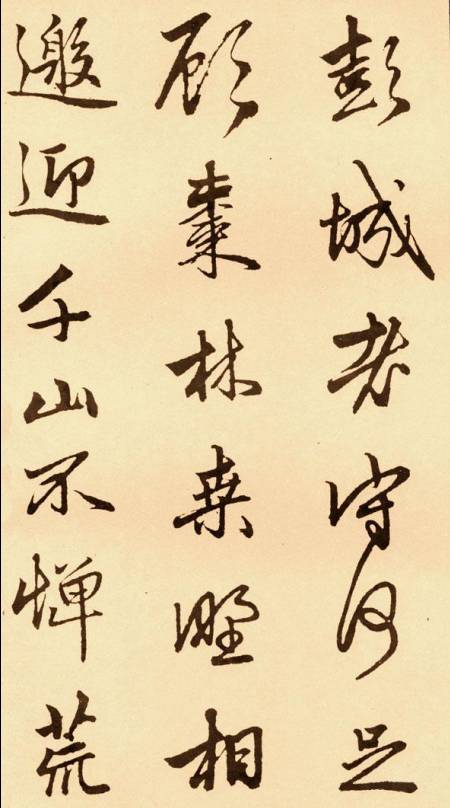 彭城老守何足
顧棗林桑野相
邀迎千山不憚荒